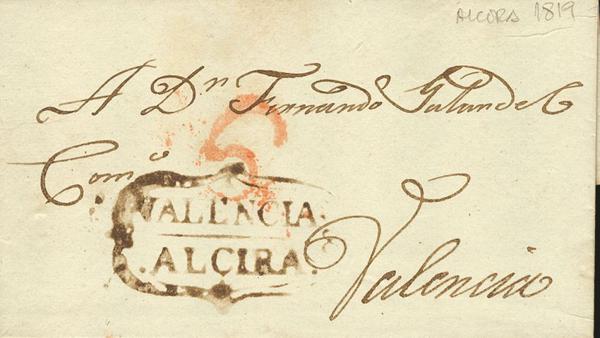 ALCORA 1819
A Dn Fernando Galande C
5
Como
VALENCIA.
.ALCIRA.
Valencia